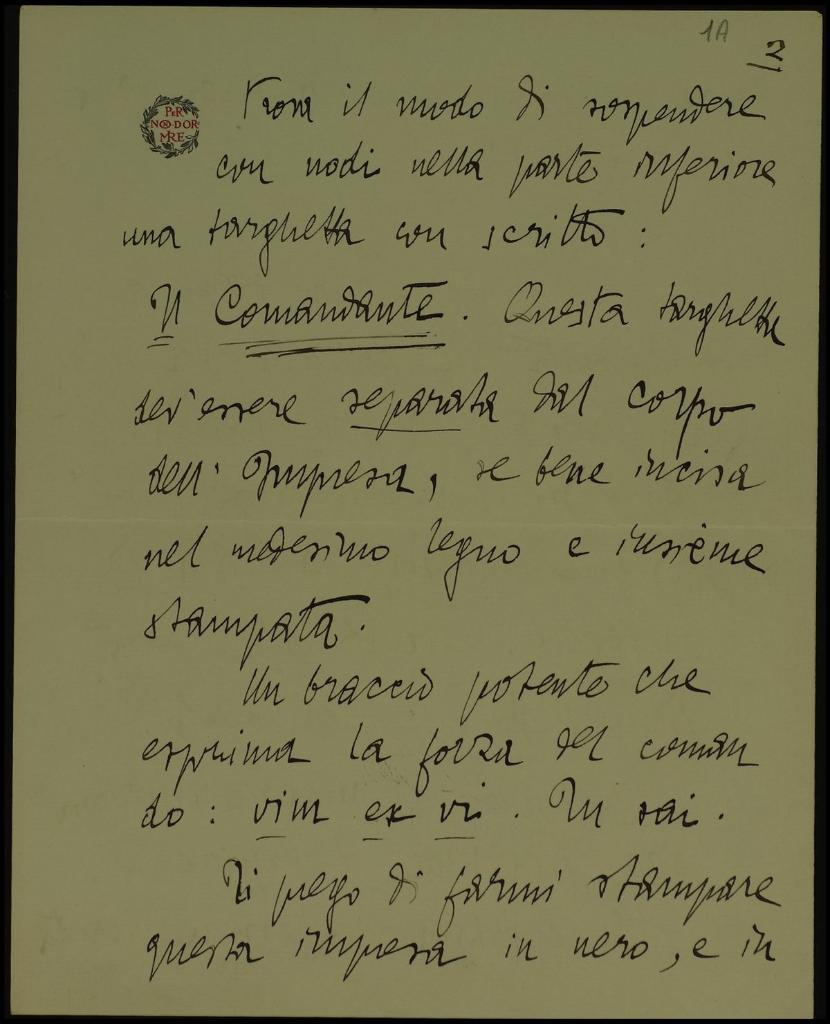 1A
2
PER
NON DOR
MIRE
Trova il modo di sospendere
con nodi nella parte inferiore
una targhetta con scritto :
Il Comandante. Questa targhetta
dev'essere separata dal corpo
dell' Impresa, se bene incisa
nel medesimo legno e insieme
stampata.
Un braccio potente che
esprima la forza del coman
do : vim ex vi. Tu sai.
Ti prego di farmi stampare
questa impresa in nero, e in